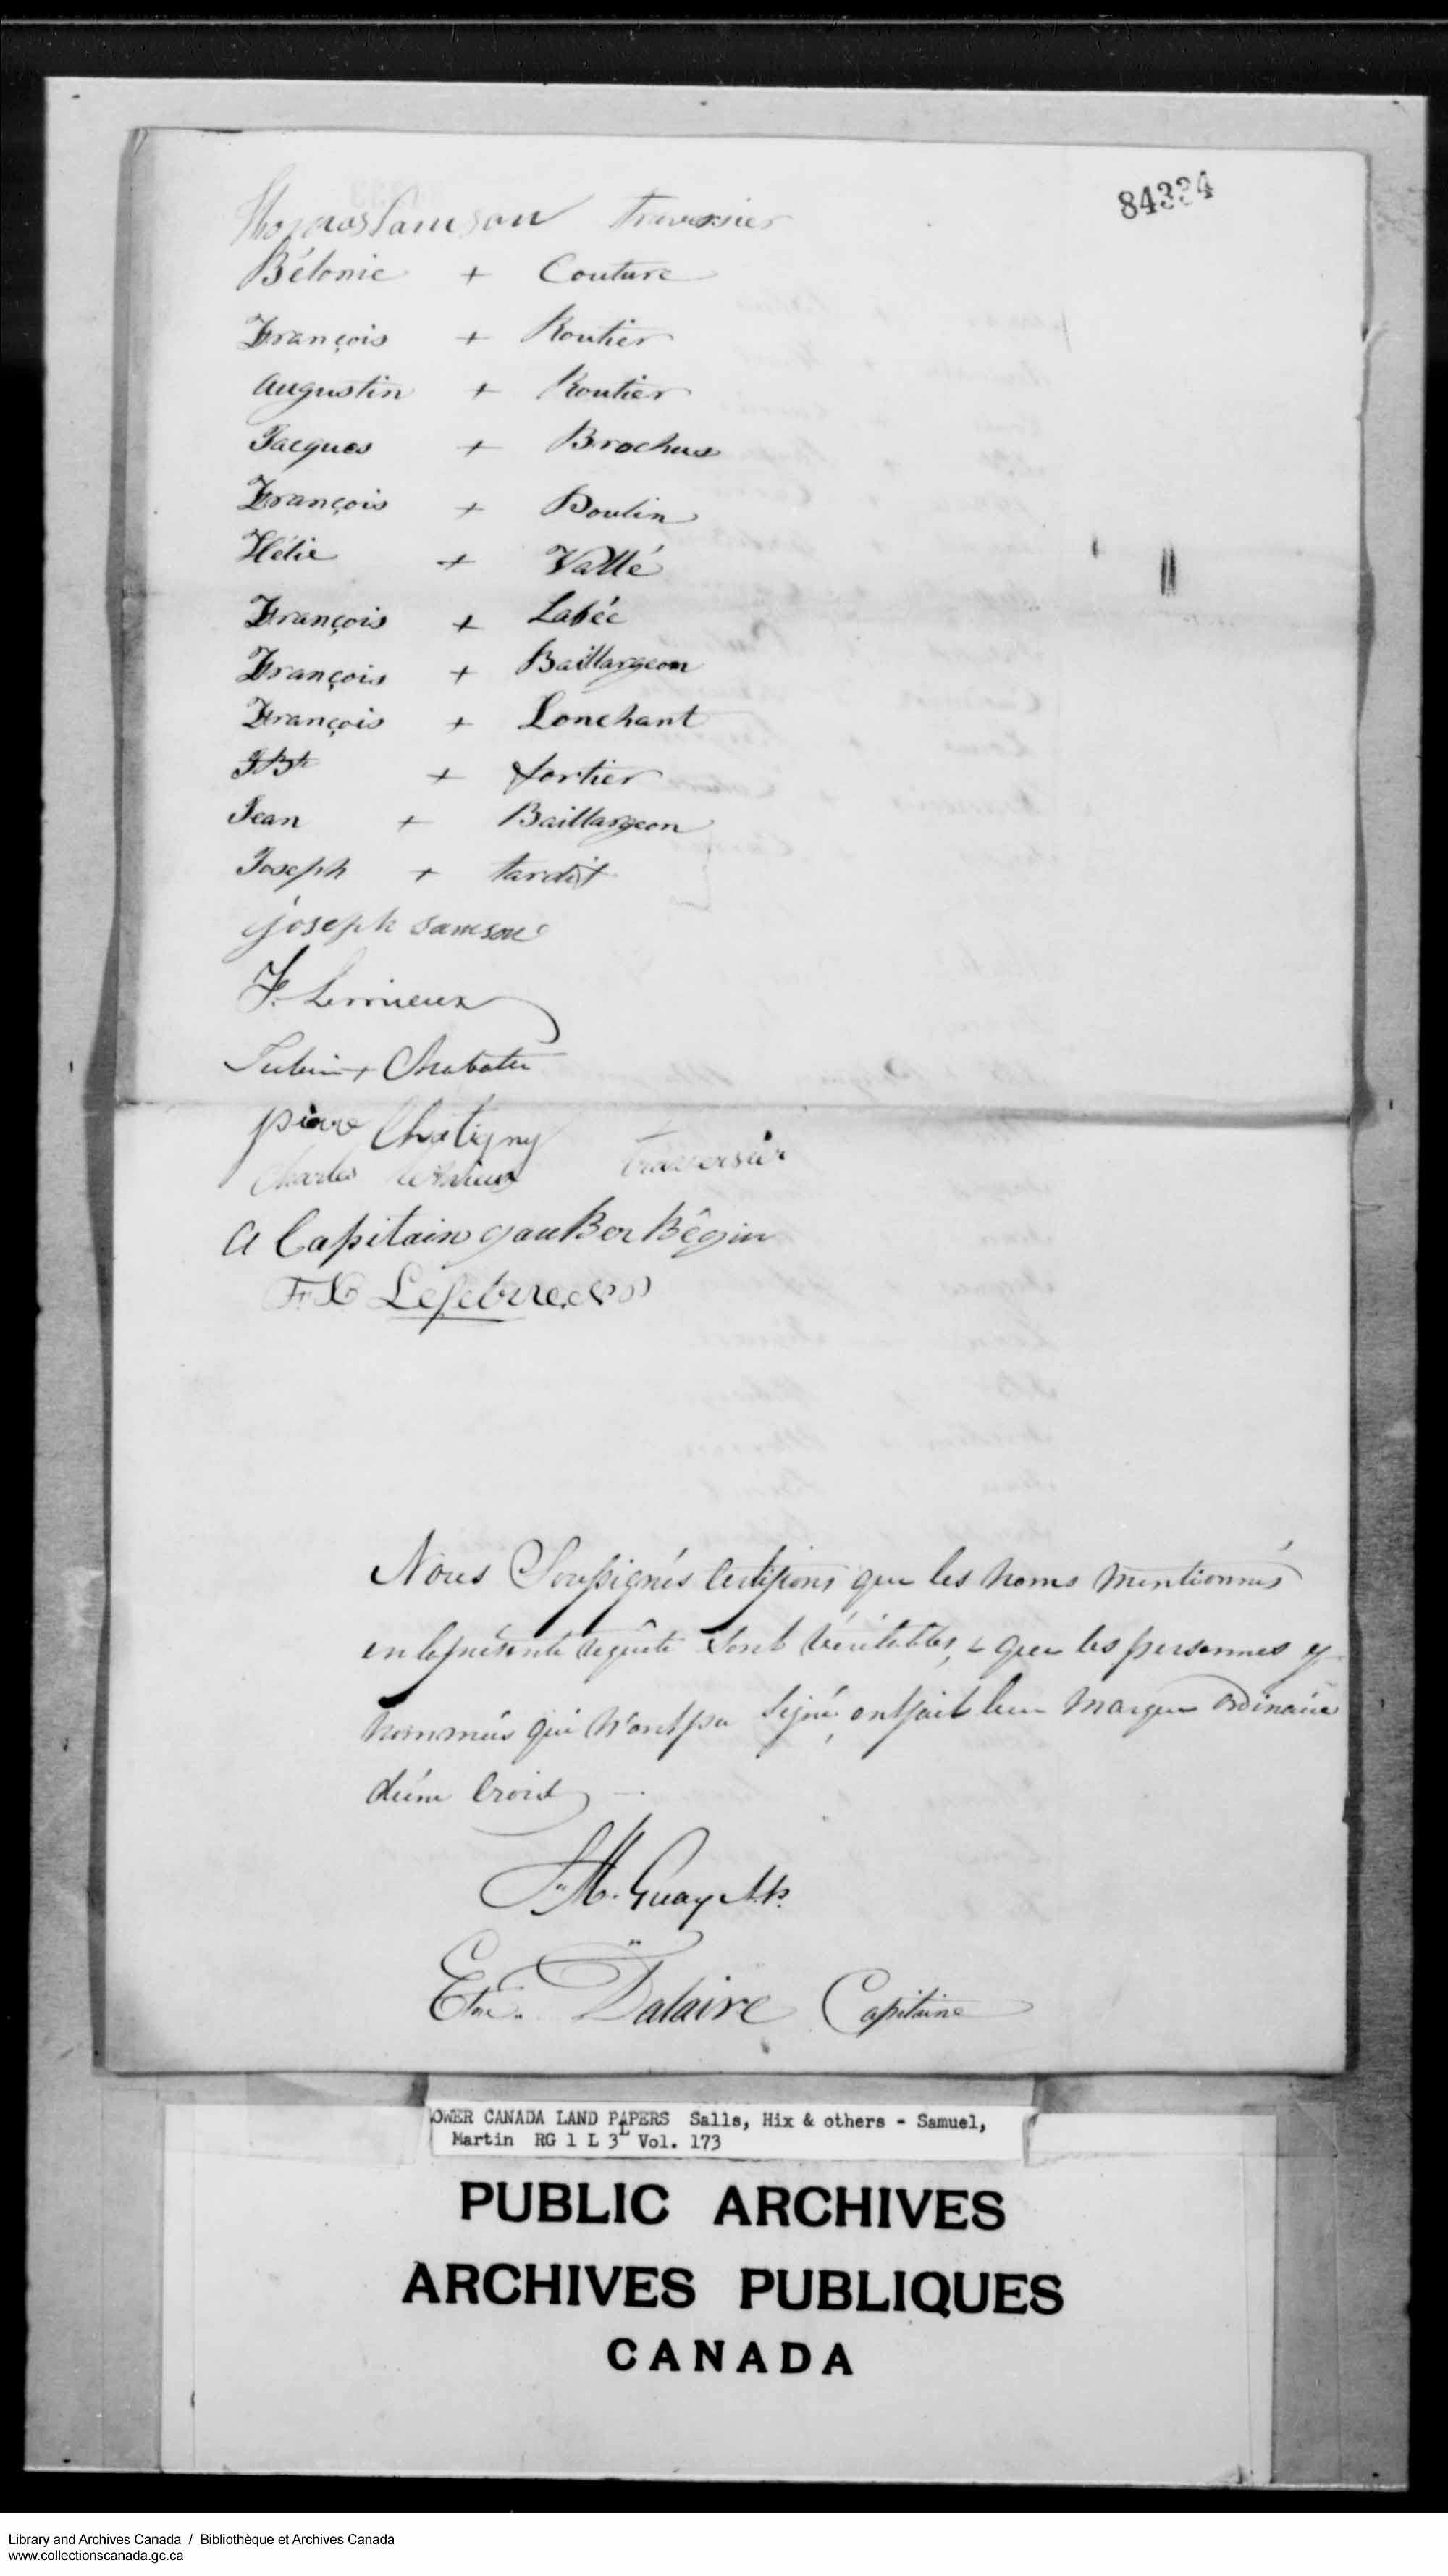 84334
Thomas Samson traversier
Bélonie + Couture
François + Routier
Augustin + Routier
Jacques + Brochus
François + Boulin
Hélie + Vallé
François + Labée
François + Baillargeon
François + Lonchant
JBte + fortier
Jean + Baillargeon
Joseph + tardif
joseph samson
F. Lemieux
+ Chabotte
pierre Chatigny
Charles traversier
A Capitain gau Ber Bêgin
F X Lefebvre
Nous Soussignés Certifions que les noms mentionnés
en la présente requête sont véritables, & que les personnes y
nommées qui n'ont pu signé, ont fait leur marque ordinaire
d'une Croix
Guay N.P.
Etne. Dalaire Capitaine
OWER CANADA LAND PAPERS Salls, Hix & others - Samuel,
Martin RG 1 L 3L Vol. 173
PUBLIC ARCHIVES
ARCHIVES PUBLIQUES
CANADA
Library and Archives Canada / Bibliothèque et Archives Canada
www.collectionscanada.gc.ca